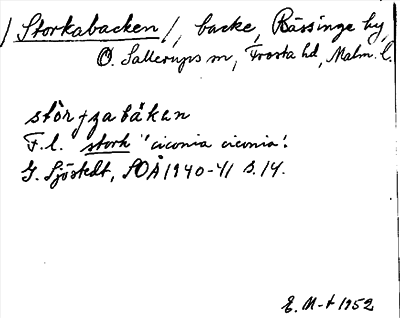 / Storkabacken /, backe, Rässinge by,
Ö. Sallerups sn, Frosta hd, Malm. l.
F.l. stork "ciconia ciconia".
G. Sjöstedt, SOÅ 1940-41 s. 14.
E. M-t 1952